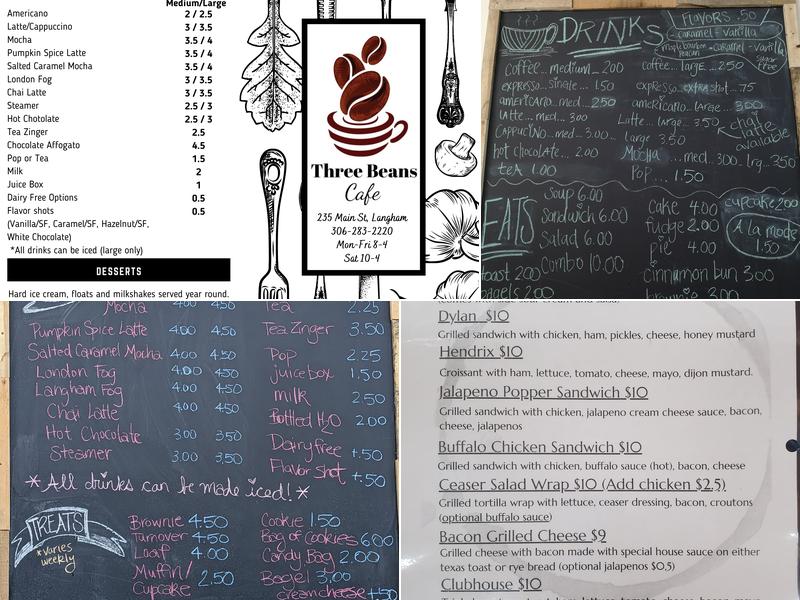 Medium/Large
Americano 2 / 2.5
Latte/Cappuccino 3 / 3.5
Mocha 3.5 / 4
Pumpkin Spice Latte 3.5 / 4
Salted Caramel Mocha 3.5 / 4
London Fog 3 / 3.5
Chai Latte 3 / 3.5
Steamer 2.5 / 3
Hot Chotolate 2.5 / 3
Tea Zinger 2.5
Chocolate Affogato 4.5
Pop or Tea 1.5
Milk 2
Juice Box 1
Dairy Free Options 0.5
Flavor shots 0.5
(Vanilla/SF, Caramel/SF, Hazelnut/SF,
White Chocolate)
*All drinks can be iced (large only)
DESSERTS
Hard ice cream, floats and milkshakes served year round.
Three Beans
Cafe
235 Main St, Langham
306-283-2220
Mon-Fri 8-4
Sat 10-4
DRINKS
FLAVORS .50
caramel - vanilla
maple bourbon pecan - caramel - vanilla
sugar free
Coffee... medium... 2.00
coffee... large... 2.50
expresso... single... 1.50
expresso... extra shot... .75
americano... med... 2.50
americano... large... 3.00
latte... med... 3.00
Latte... large... 3.50
chai latte available
Cappuccino... med... 3.00...
large 3.50
hot chocolate... 2.00
Mocha ...med... 3.00... lrg... 3.50
tea 1.00
Pop.... 1.50
EATS
Soup 6.00
Sandwich 6.00
Salad 6.00
Combo 10.00
toast 2.00
bagels 2.00
cake 4.00
fudge 2.00
pie 4.00
cinnamon bun 3.00
brownie 3.00
cupcake 2.00
A la mode
1.50
Mocha 4.00 4.50
Pumpkin Spice Latte 4.00 4.50
Salted Caramel Mocha 4.00 4.50
London Fog 4.00 4.50
Langham Fog 4.00 4.50
Chai Latte 4.00 4.50
Hot Chocolate 3.00 3.50
Steamer 3.00 3.50
Tea 2.25
Tea Zinger 3.50
Pop 2.25
juice box 1.50
milk 2.50
Bottled H2O 2.00
Dairy free +.50
Flavor shot +.50
*All drinks can be made iced!*
TREATS
*varies
weekly
Brownie 4.50
Turnover 4.50
Loaf 4.00
Muffin/
Cupcake 2.50
Cookie 1.50
Bag of Cookies 6.00
Candy Bag 2.00
Bagel 3.00
cream cheese +.50
Dylan $10
Grilled sandwich with chicken, ham, pickles, cheese, honey mustard
Hendrix $10
Croissant with ham, lettuce, tomato, cheese, mayo, dijon mustard.
Jalapeno Popper Sandwich $10
Grilled sandwich with chicken, jalapeno cream cheese sauce, bacon,
cheese, jalapenos
Buffalo Chicken Sandwich $10
Grilled sandwich with chicken, buffalo sauce (hot), bacon, cheese
Ceaser Salad Wrap $10 (Add chicken $2.5)
Grilled tortilla wrap with lettuce, ceaser dressing, bacon, croutons
(optional buffalo sauce)
Bacon Grilled Cheese $9
Grilled cheese with bacon made with special house sauce on either
texas toast or rye bread (optional jalapenos $0.5)
Clubhouse $10